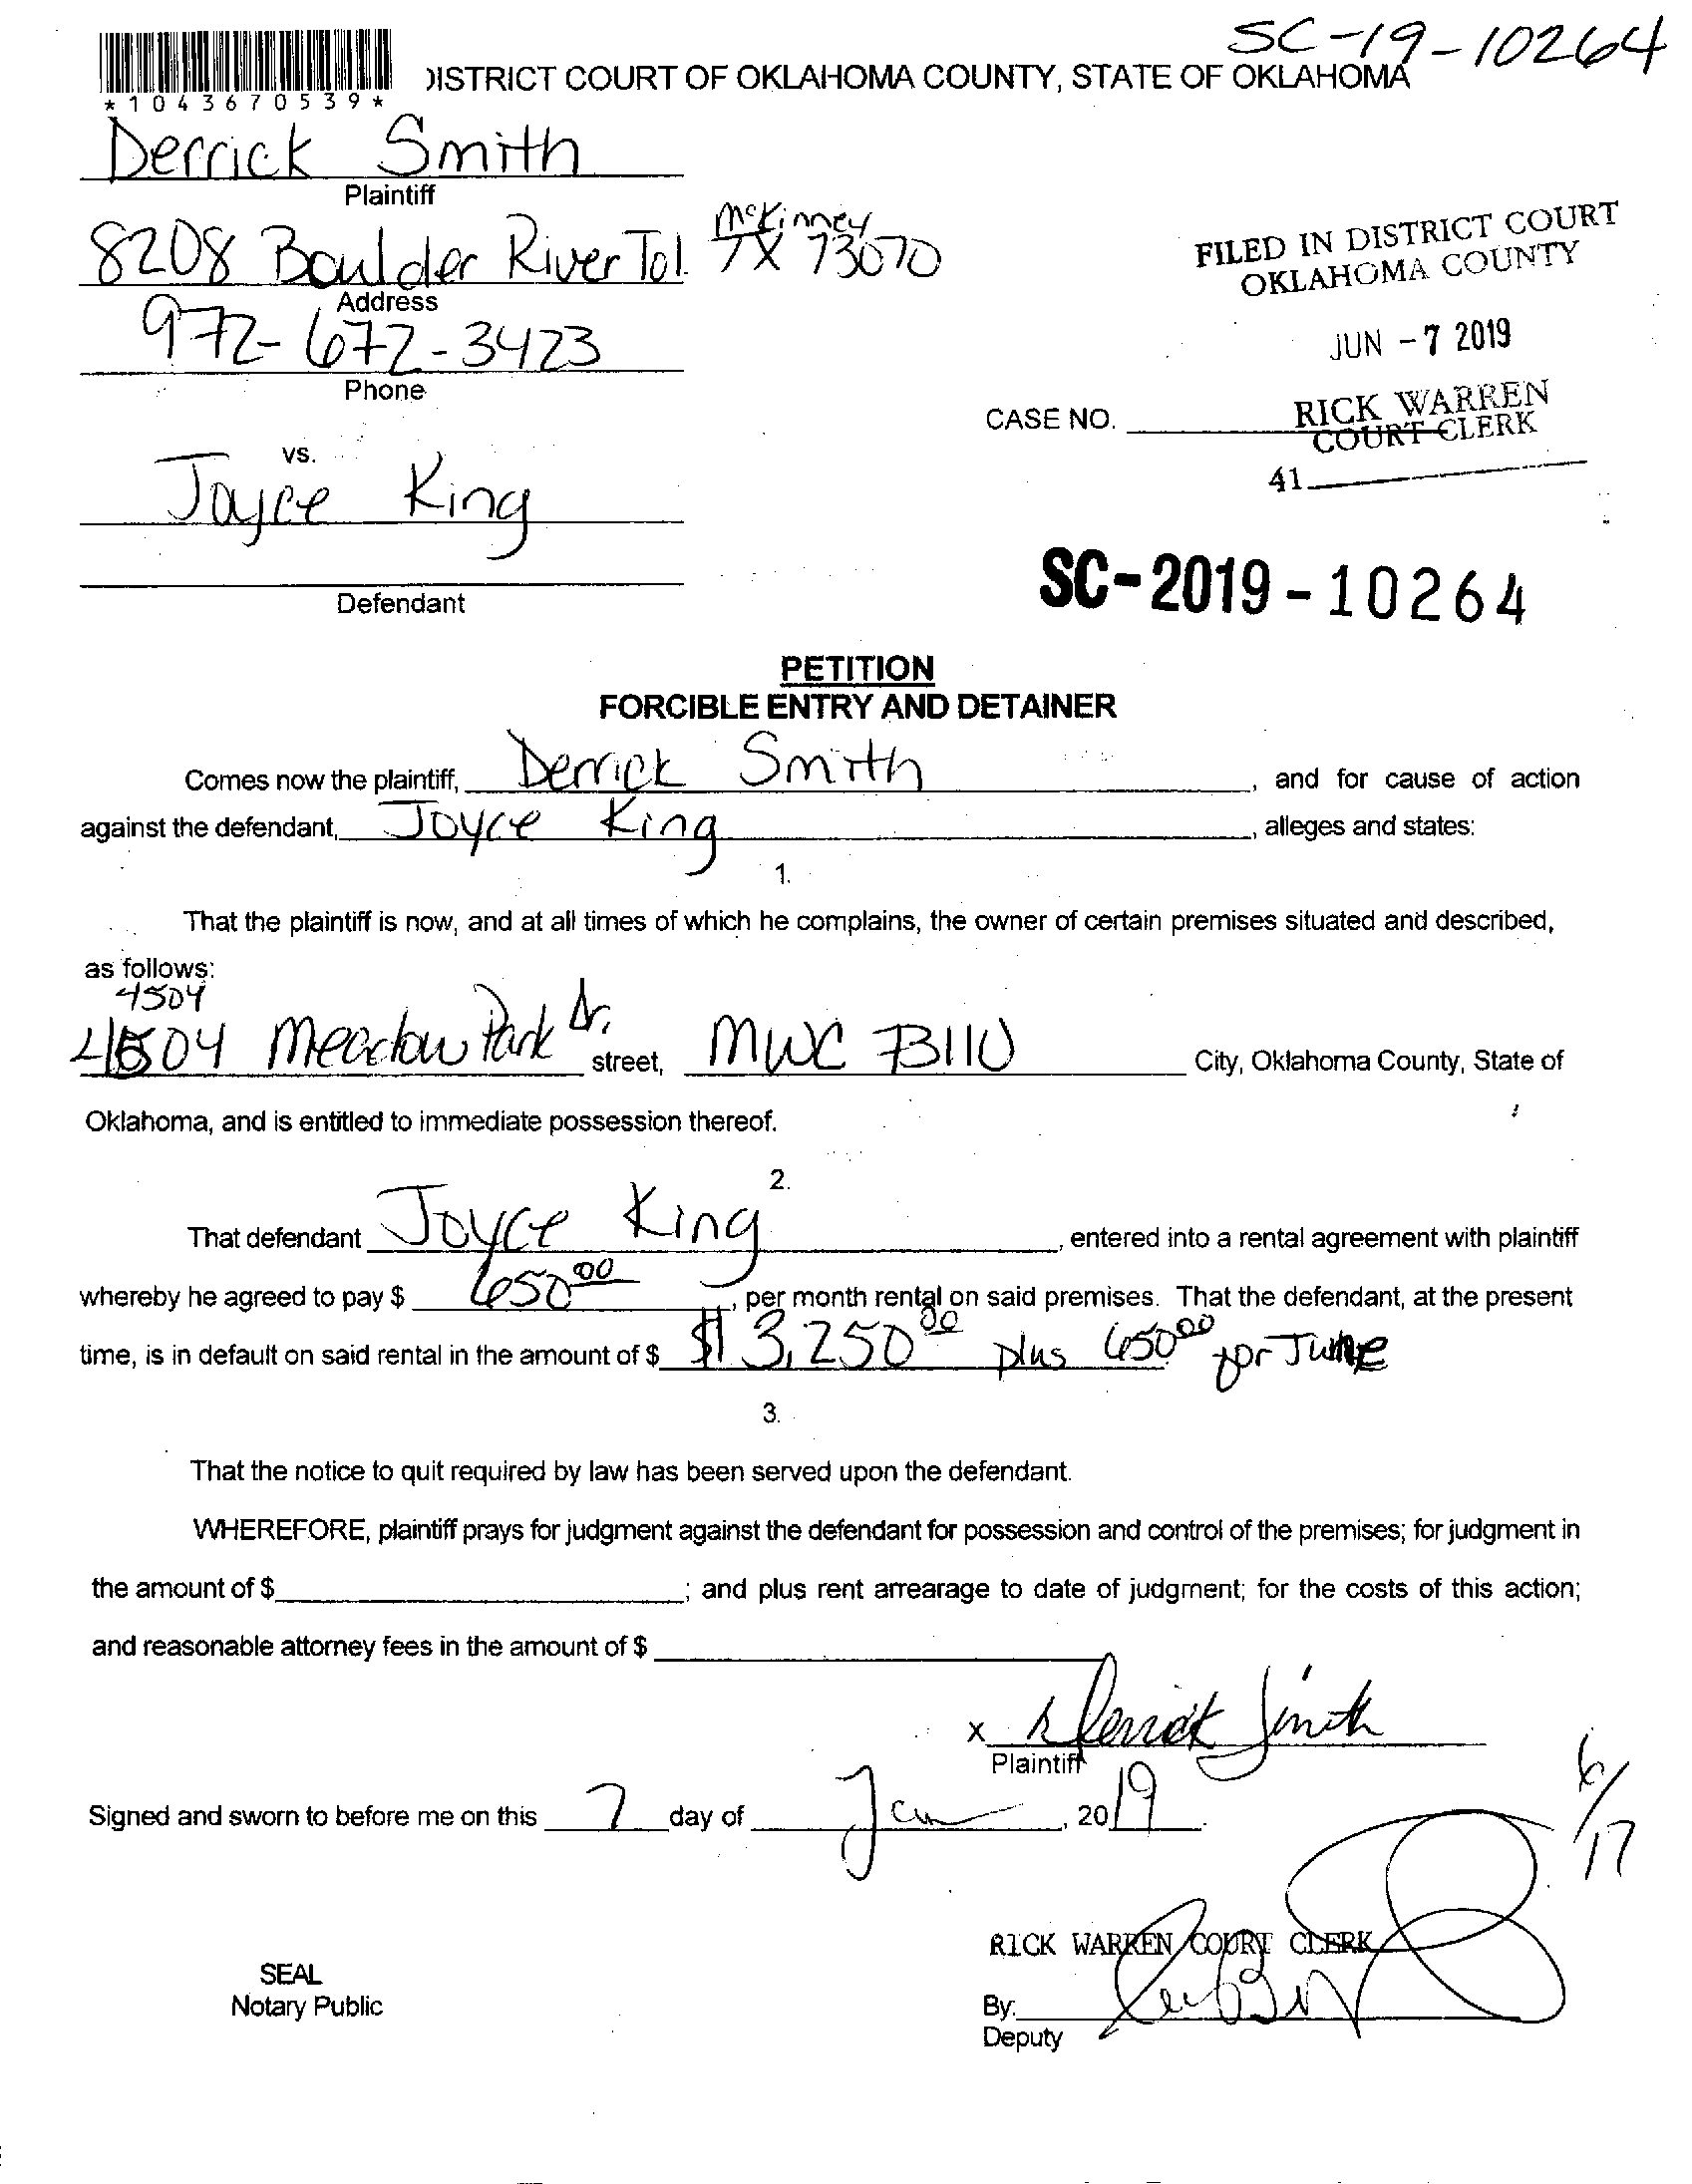 SC-19-10264
*1043670539*
DISTRICT COURT OF OKLAHOMA COUNTY, STATE OF OKLAHOMA
Derrick Smith
Plaintiff
8208 Boulder River Tol. McKinney TX 73070
Address
972-672-3423
Phone
FILED IN DISTRICT COURT
OKLAHOMA COUNTY
JUN -7 2019
RICK WARREN
COURT CLERK
41
CASE NO.
vs.
Joyce King
Defendant
SC-2019-10264
PETITION
FORCIBLE ENTRY AND DETAINER
Comes now the plaintiff, Derrick Smith, and for cause of action
against the defendant, Joyce King, alleges and states:
1.
That the plaintiff is now, and at all times of which he complains, the owner of certain premises situated and described,
as follows:
4504
4504 Meadow Park Dr. street, MWC 73110 City, Oklahoma County, State of
Oklahoma, and is entitled to immediate possession thereof.
2.
That defendant Joyce King, entered into a rental agreement with plaintiff
whereby he agreed to pay $ 650 00, per month rental on said premises. That the defendant, at the present
time, is in default on said rental in the amount of $ $3,250 00 plus 650 00 for June
3.
That the notice to quit required by law has been served upon the defendant.
WHEREFORE, plaintiff prays for judgment against the defendant for possession and control of the premises; for judgment in
the amount of $ ; and plus rent arrearage to date of judgment; for the costs of this action;
and reasonable attorney fees in the amount of $
x Derrick Smith
Plaintiff
6/17
Signed and sworn to before me on this 7 day of Jun, 2019.
RICK WARREN COURT CLERK
SEAL
Notary Public
By:
Deputy